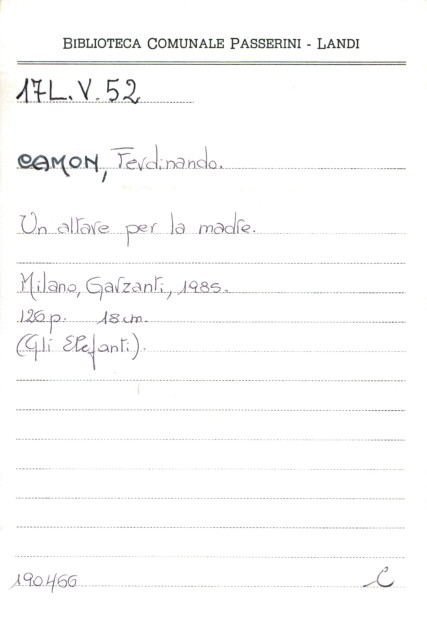 BIBLIOTECA COMUNALE PASSERINI - LANDI
17L.V.52
CAMON, Ferdinando.
Un altare per la madre.
Milano, Garzanti, 1985.
126p. 18cm.
(Gli Elefanti).
190466 C